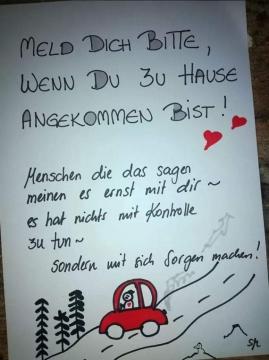 MELD DICH BITTE,
WENN DU ZU HAUSE
ANGEKOMMEN BIST!
Menschen die das sagen
meinen es ernst mit dir ~
es hat nichts mit Kontrolle
zu tun ~
sondern mit sich Sorgen machen!